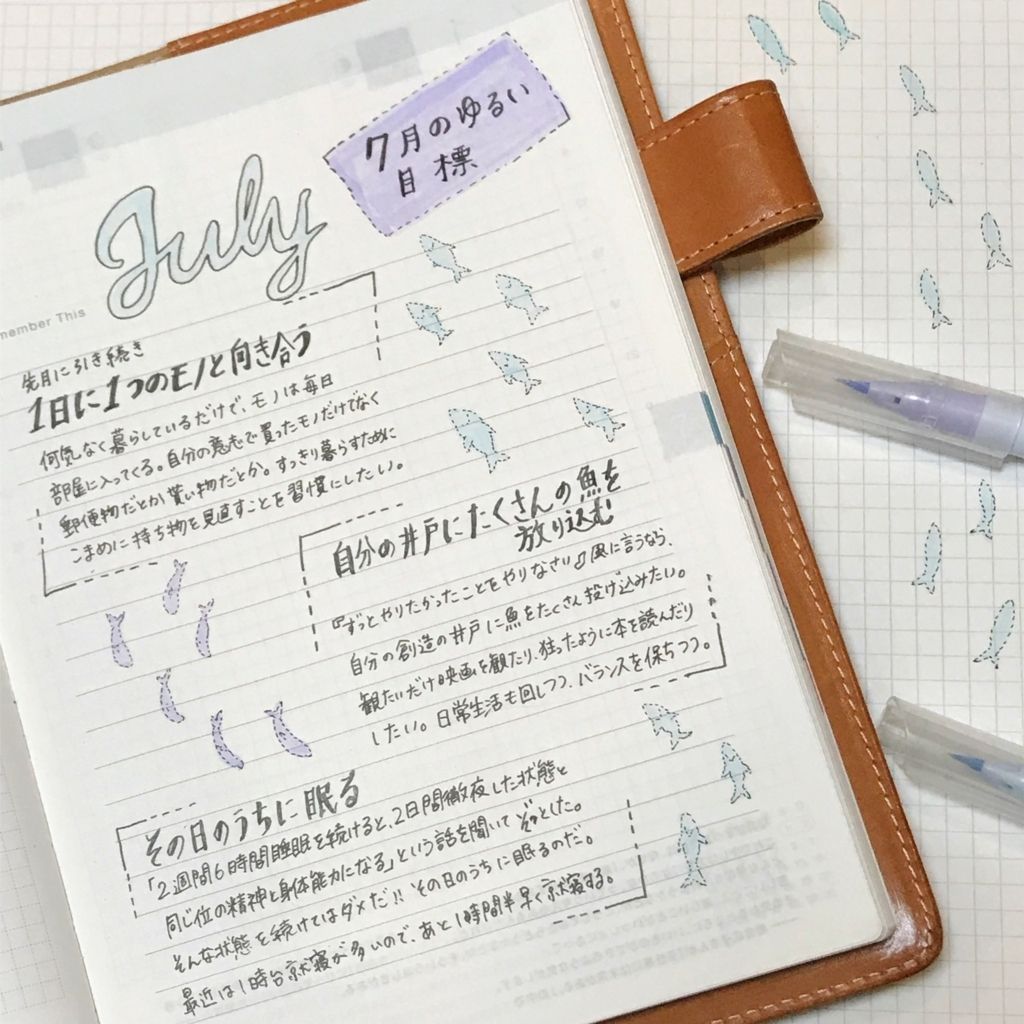 7月のゆるい
目標
July
member This
先月に引き続き
1日に1つのモノと向き合う
何気なく暮らしているだけで、モノは毎日
部屋に入ってくる。自分の意志で買ったモノだけでなく
郵便物だとか貰い物だとか。すっきり暮らすために
こまめに持ち物を見直すことを習慣にしたい。
自分の井戸にたくさんの魚を
放り込む
『ずっとやりたかったことをやりなさい』風に言うなら、
自分の創造の井戸に魚をたくさん投げ込みたい。
観たいだけ映画を観たり、狂ったように本を読んだり
したい。日常生活も回しつつ、バランスを保ちつつ。
その日のうちに眠る
「2週間6時間睡眠を続けると、2日間徹夜した状態と
同じ位の精神と身体能力になる」という話を聞いてぞっとした。
そんな状態を続けてはダメだ!! その日のうちに眠るのだ。
最近は1時台就寝が多いので、あと1時間半早く就寝する。